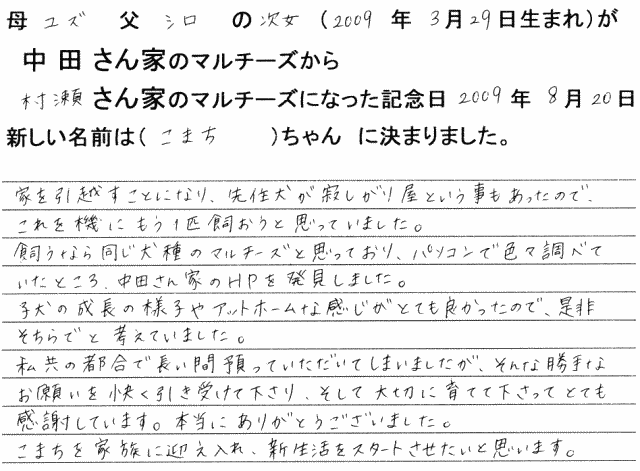 母 ユズ 父 シロ の 次女 (2009 年 3月29日生まれ)が
中田 さん家のマルチーズから
村瀬 さん家のマルチーズになった記念日 2009 年 8月20日
新しい名前は( こまち )ちゃん に決まりました。
家を引越すことになり、先住犬が寂しがり屋という事もあったので、
これを機にもう1匹飼おうと思っていました。
飼うなら同じ犬種のマルチーズと思っており、パソコンで色々調べて
いたところ、中田さん家のHPを発見しました。
子犬の成長の様子やアットホームな感じがとても良かったので、是非
そちらでと考えていました。
私共の都合で長い間預っていただいてしまいましたが、そんな勝手な
お願いを快く引き受けて下さり、そして大切に育てて下さってとても
感謝しています。本当にありがとうございました。
こまちを家族に迎え入れ、新生活をスタートさせたいと思います。